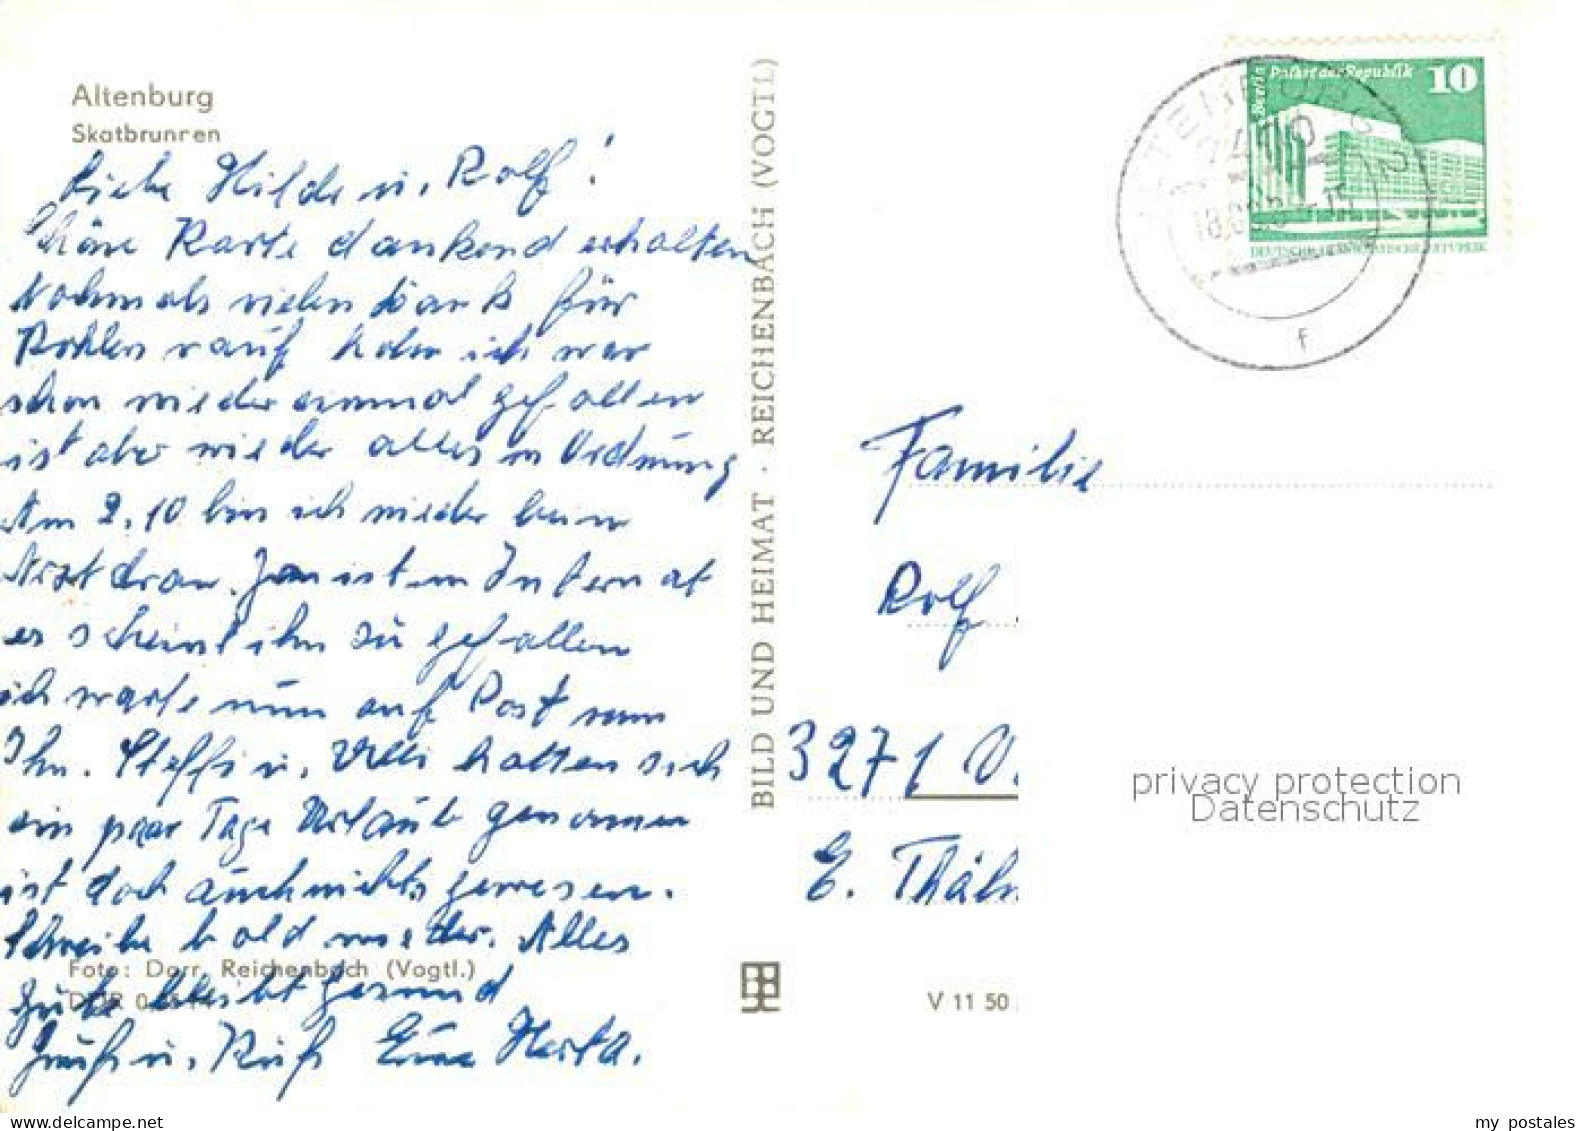 Altenburg
Skatbrunnen
Liebe Hilde u. Rolf!
Schöne Karte dankend erhalten
Nochmals vielen Dank für
Kohlen rauf holen ich war
schon wieder einmal gefallen
ist aber wieder alles in Ordnung
Am 2.10 bin ich wieder beim
Arzt dran. Jan ist im Internat
es scheint ihm zu gefallen
ich warte nun auf Post vom
Ihn. Steffi u. Ulli hatten sich
ein paar Tage Urlaub genommen
ist doch auch nichts gewesen.
Schreibe bald wieder. Alles
Gute bleibt Gesund
Gruß u. Kuß Eure Herta.
Foto: Dorr, Reichenbach (Vogtl.)
DDR
BILD UND HEIMAT · REICHENBACH (VOGTL)
V 11 50
Berlin Palast der Republik 10
DEUTSCHE DEMOKRATISCHE REPUBLIK
ALTENBURG 2
7400
f
Familie
Rolf
3271 V.
E. Thälm
privacy protection
Datenschutz
www.delcampe.net
my_postales